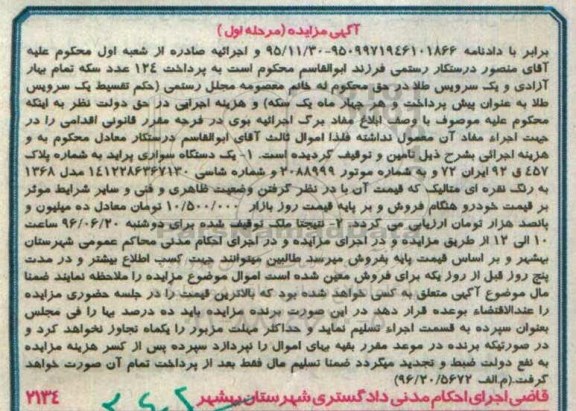 آگهی مزایده (مرحله اول)
برابر با دادنامه ۹۵۰۹۹۷۱۹۴۶۱۰۱۸۶۶-۹۵/۱۱/۳۰ و اجرائیه صادره از شعبه اول محکوم علیه
آقای منصور درستکار رستمی فرزند ابوالقاسم محکوم است به پرداخت ۱۲۴ عدد سکه تمام بهار
آزادی و یک سرویس طلا در حق محکوم له خانم معصومه مجلل رستمی (حکم تقسیط یک سرویس
طلا به عنوان پیش پرداخت و هر چهار ماه یک سکه) و هزینه اجرایی در حق دولت نظر به اینکه
محکوم علیه موصوف با وصف ابلاغ مفاد برگ اجرائیه بوی در فرجه مقرر قانونی اقدامی را در
جهت اجراء مفاد آن معمول نداشته فلذا اموال ثالث آقای ابوالقاسم درستکار معادل محکوم به و
هزینه اجرائی بشرح ذیل تامین و توقیف گردیده است. ۱- یک دستگاه سواری پراید به شماره پلاک
۴۵۷ ق ۹۲ ایران ۷۲ و به شماره موتور ۲۰۸۸۹۹۹ و شماره شاسی ۱۴۱۲۲۸۶۳۶۷۱۳۰ مدل ۱۳۶۸
به رنگ نقره ای متالیک که قیمت آن با در نظر گرفتن وضعیت ظاهری و فنی و سایر شرایط موثر
بر قیمت خودرو هنگام فروش و بر پایه قیمت روز بازار ۱۰/۵۰۰/۰۰۰ تومان معادل ده میلیون و
پانصد هزار تومان ارزیابی می گردد. ۲- نتیجتا پلاک توقیف شده برای دوشنبه ۹۶/۰۶/۲۰ ساعت
۱۰ الی ۱۲ از طریق مزایده و در اجرای مزایده و در اجرای احکام مدنی محاکم عمومی شهرستان
بهشهر و بر اساس قیمت پایه بفروش میرسد طالبین میتوانند جهت کسب اطلاع بیشتر و در مدت
پنج روز قبل از روز یکه برای فروش معین شده است اموال موضوع مزایده را ملاحظه نمایند ضمنا
مال موضوع آگهی متعلق به کسی خواهد شده بود که بالاترین قیمت را در جلسه حضوری مزایده
را عندالاقتضاء بوعده قرار دهد در این صورت برنده مزایده باید ده درصد بها را فی مجلس
بعنوان سپرده به قسمت اجراء تسلیم نماید و حداکثر مهلت مزبور را یکماه تجاوز نخواهد کرد و
در صورتیکه برنده در موعد مقرر بقیه بهای اموال را نپردازد سپرده پس از کسر هزینه مزایده
به نفع دولت ضبط و تجدید میگردد ضمنا تسلیم مال فقط بعد از پرداخت تمام آن صورت خواهد
گرفت.(م.الف ۹۶/۲۰/۵۶۷۲)
قاضی اجرای احکام مدنی دادگستری شهرستان بهشهر ۲۱۳۴